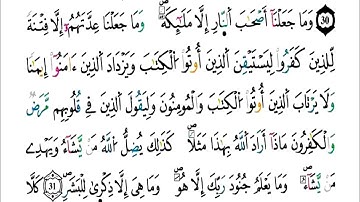 ٣٠ وَمَا جَعَلْنَآ أَصْحَٰبَ ٱلنَّارِ إِلَّا مَلَٰٓئِكَةً ۖ وَمَا جَعَلْنَا عِدَّتَهُمْ إِلَّا فِتْنَةً
لِّلَّذِينَ كَفَرُوا۟ لِيَسْتَيْقِنَ ٱلَّذِينَ أُوتُوا۟ ٱلْكِتَٰبَ وَيَزْدَادَ ٱلَّذِينَ ءَامَنُوٓا۟ إِيمَٰنًا ۙ
وَلَا يَرْتَابَ ٱلَّذِينَ أُوتُوا۟ ٱلْكِتَٰبَ وَٱلْمُؤْمِنُونَ ۙ وَلِيَقُولَ ٱلَّذِينَ فِى قُلُوبِهِم مَّرَضٌ
وَٱلْكَٰفِرُونَ مَاذَآ أَرَادَ ٱللَّهُ بِهَٰذَا مَثَلًا ۚ كَذَٰلِكَ يُضِلُّ ٱللَّهُ مَن يَشَآءُ وَيَهْدِى
مَن يَشَآءُ ۚ وَمَا يَعْلَمُ جُنُودَ رَبِّكَ إِلَّا هُوَ ۚ وَمَا هِىَ إِلَّا ذِكْرَىٰ لِلْبَشَرِ ٣١ كَلَّا